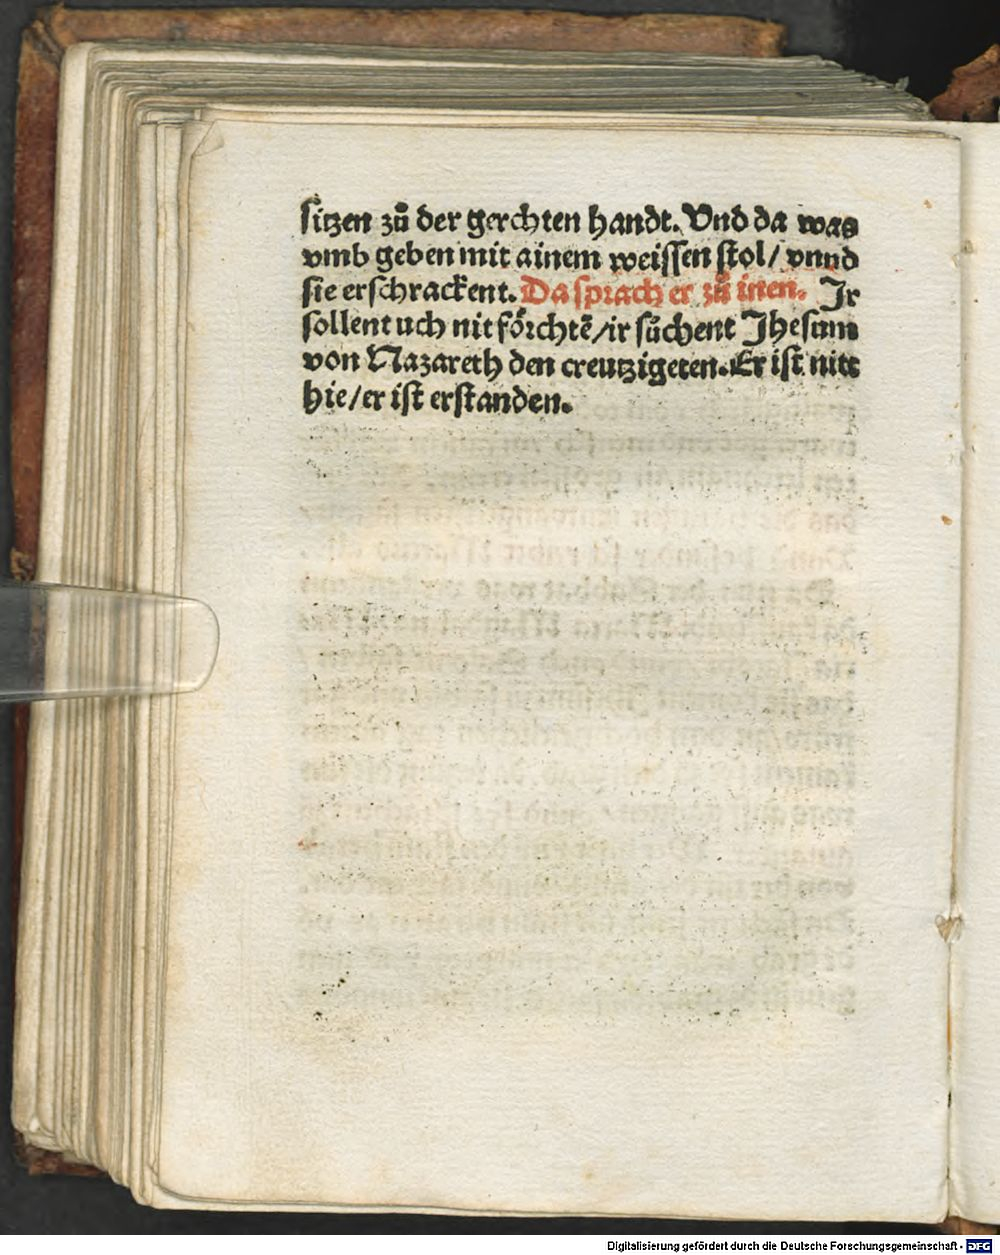 sitzen zů der gerchten handt. Vnd da was
vmb geben mit ainem weissen stol / vnnd
sie erschrackent. Da sprach er zů inen. Ir
sollent uch nit fórchtē / ir sůchent Jhesum
von Nazareth den creutzigeten. Er ist nitt
hie / er ist erstanden.
Digitalisierung gefördert durch die Deutsche Forschungsgemeinschaft - DFG